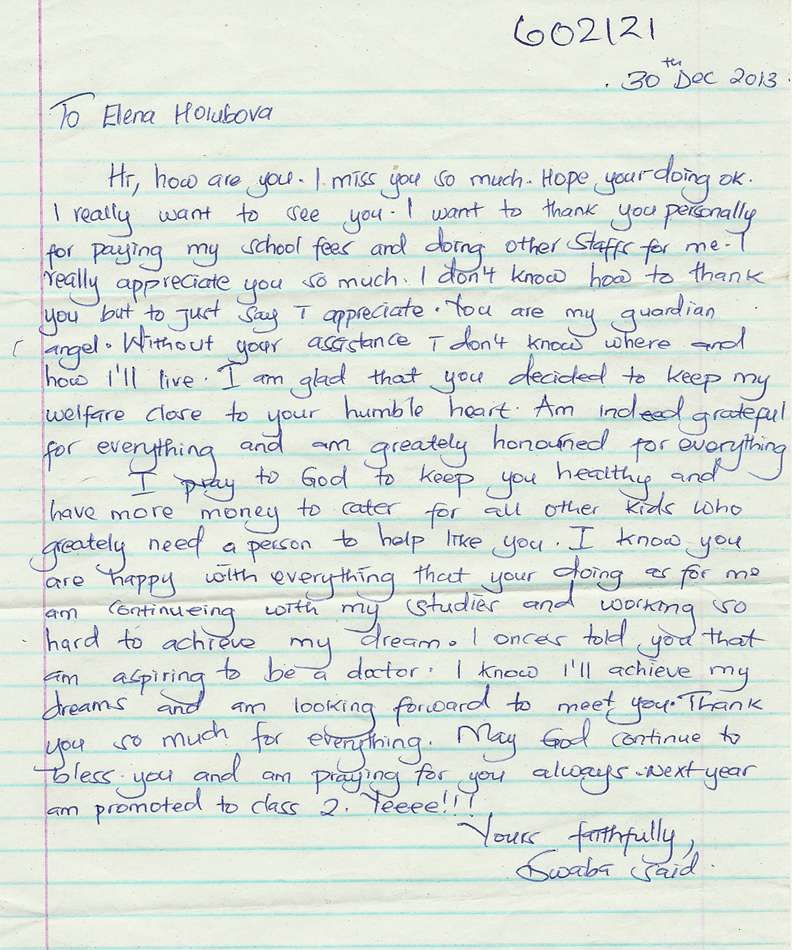 602121
30th Dec 2013.
To Elena Holubova
Hi, how are you. I miss you so much. Hope your doing ok.
I really want to see you. I want to thank you personally
for paying my school fees and doing other Staffs for me. I
really appreciate you so much. I don't know how to thank
you but to just say I appreciate. You are my guardian
angel. Without your assistance I don't know where and
how I'll live. I am glad that you decided to keep my
welfare close to your humble heart. Am indeed grateful
for everything and am greately honoured for everything
I pray to God to keep you healthy and
have more money to cater for all other kids who
greately need a person to help like you. I know you
are happy with everything that your doing as for me
am continueing with my studies and working so
hard to achieve my dream. I onces told you that
am aspiring to be a doctor. I know I'll achieve my
dreams and am looking forward to meet you. Thank
you so much for everything. May God continue to
bless you and am praying for you always. Next year
am promoted to class 2. Yeeee!!!
Yours faithfully,
Swaba Said.